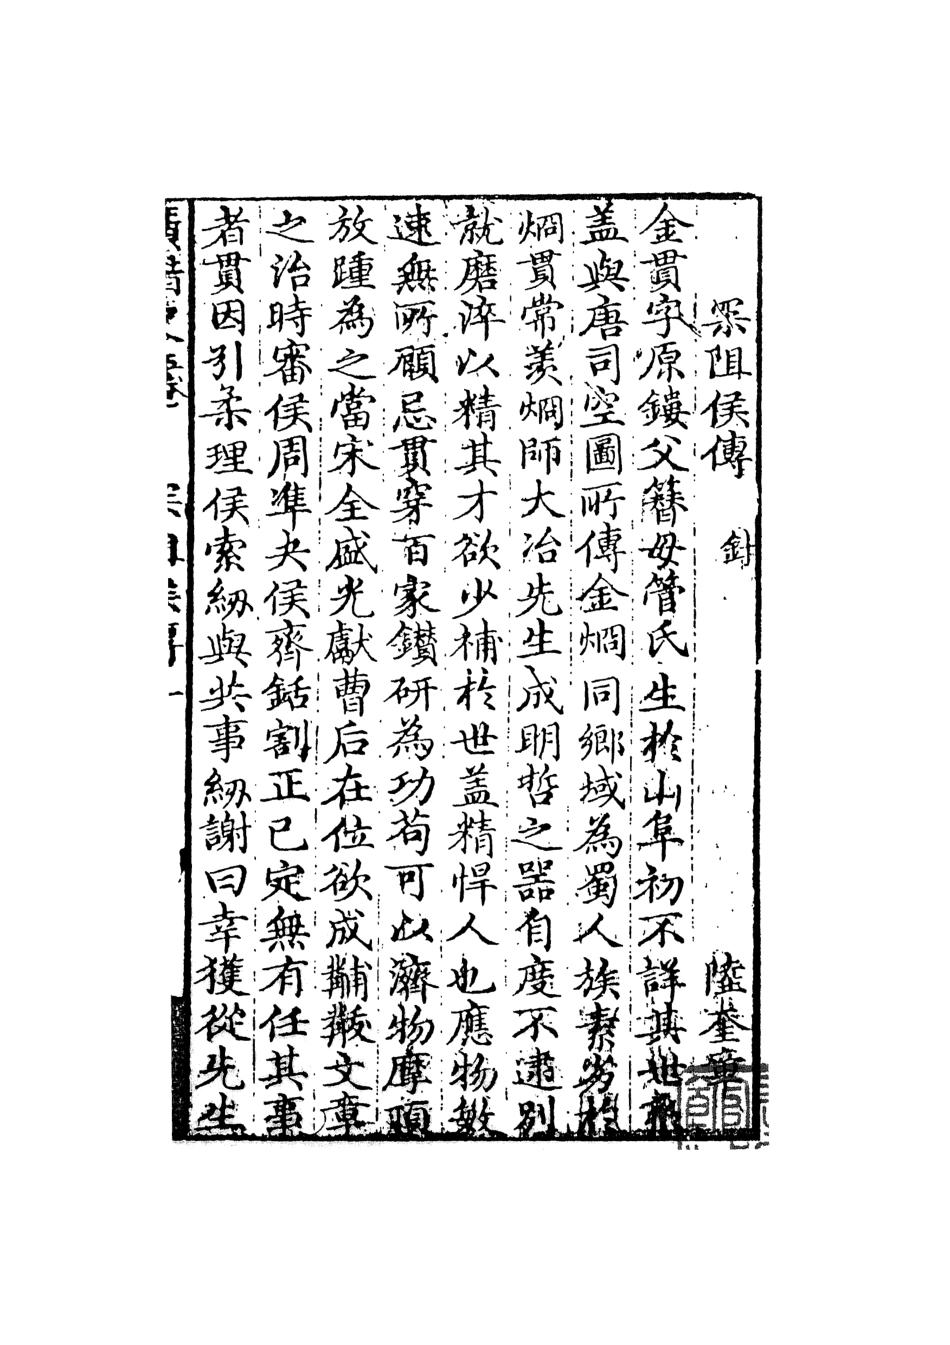 罙阻侯傳 針 陸奎章
金貫字原鏤父簪母管氏生於山阜初不詳其世裔
盖與唐司空圖所傳金炯同鄉域為蜀人族素劣於
炯貫常羡炯師大冶先生成明哲之器自度不逮別
就磨淬以精其才欲少補於世盖精悍人也應物敏
速無所顧忌貫穿百家鑚研為功苟可以濟物摩頂
放踵為之當宋全盛光獻曹后在位欲成黼黻文章
之治時審侯周凖夬侯齊銛割正已定無有任其事
者貫因引柔理侯索紉與共事紉謝曰幸獲從先生